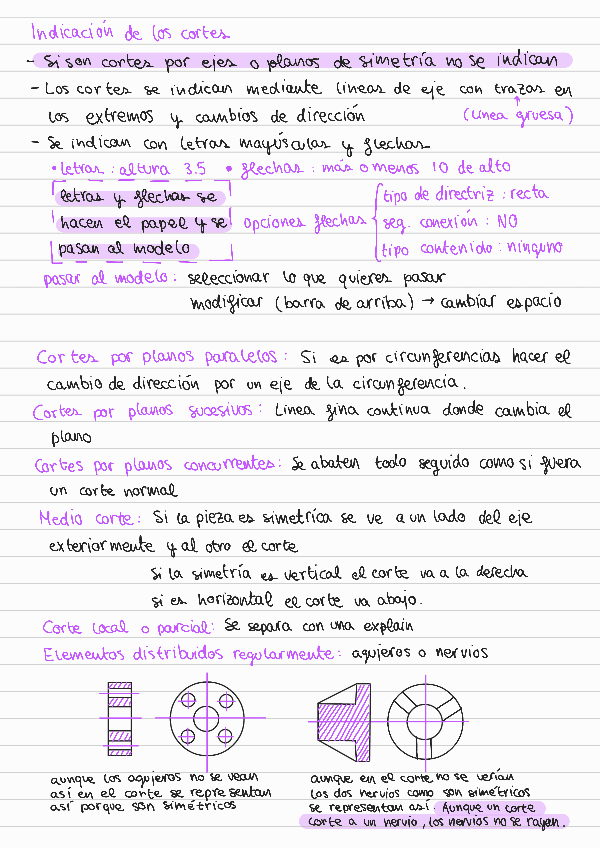 Indicación de los cortes
- Si son cortes por ejes o planos de simetría no se indican
- Los cortes se indican mediante lineas de eje con trazas en
los extremos y cambios de dirección (linea gruesa)
- Se indican con letras mayúsculas y flechas
• letras : altura 3.5 • flechas : más o menos 10 de alto
letras y flechas se
hacen el papel y se
pasan al modelo
opciones flechas
tipo de directriz : recta
seg. conexión : NO
tipo contenido : ninguno
pasar al modelo : seleccionar lo que quieres pasar
modificar (barra de arriba) → cambiar espacio
Cortes por planos paralelos : Si es por circunferencias hacer el
cambio de dirección por un eje de la circunferencia.
Cortes por planos sucesivos : Linea fina continua donde cambia el
plano
Cortes por planos concurrentes : Se abaten todo seguido como si fuera
un corte normal
Medio corte : Si la pieza es simetrica se ve a un lado del eje
exteriormente y al otro el corte
Si la simetría es vertical el corte va a la derecha
si es horizontal el corte va abajo.
Corte local o parcial : Se separa con una explain
Elementos distribuidos regularmente : agujeros o nervios
aunque los agujeros no se vean
así en el corte se representan
así porque son simétricos
aunque en el corte no se verían
los dos nervios como son simétricos
se representan así. Aunque un corte
corte a un nervio, los nervios no se rayan.